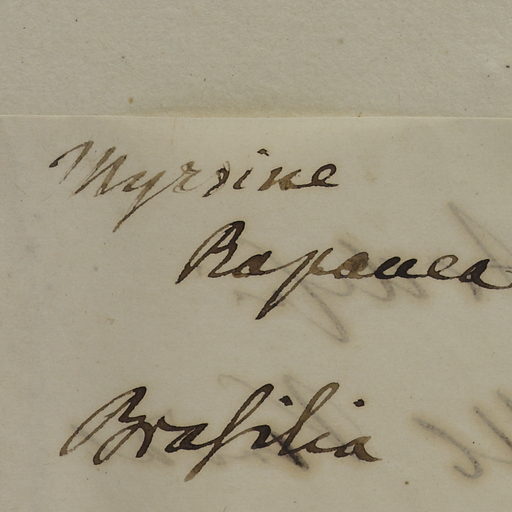 Myrsine
Rapanea
Brasilia